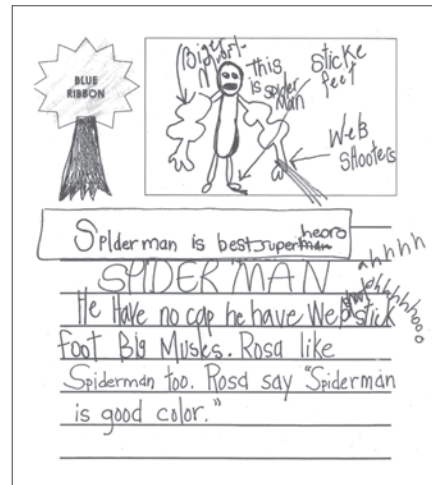 BLUE
RIBBON
Big
This
is spider
man
sticke
feet
Web
Shooters
Spiderman is best super heoro
ahhhh
SPIDER MAN
He Have no cap he have Web stick
foot Big Musks. Rosa like
Spiderman too. Rosa say "Spiderman
is good color."